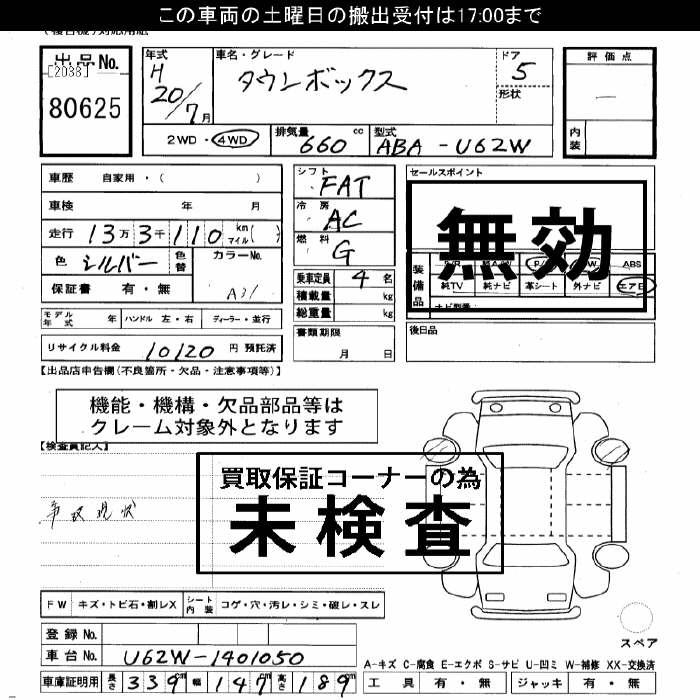 この車両の土曜日の搬出受付は17:00まで
出品No.
[2038]
80625
年式
H
20/7月
車名・グレード
タウンボックス
ドア
5
形状
評価点
内装
2WD・4WD
排気量
660 cc
型式
ABA-U62W
車歴 自家用・( )
車検 年 月
走行 13万3千110 km マイル( )
色 シルバー 色替
カラーNo.
A31
保証書 有・無
モデル年式 年 ハンドル 左・右 ディーラー・並行
リサイクル料金 10120 円 預託済
シフト
FAT
冷房
AC
燃料
G
乗車定員 4 名
積載量 kg
総重量 kg
書類期限
月 日
セールスポイント
無効
装備品
ABS
純TV 純ナビ 革シート 外ナビ エアB
後日品
【出品店申告欄(不良箇所・欠品・注意事項等)】
機能・機構・欠品部品等は
クレーム対象外となります
【検査員記入】
買取保証コーナーの為
未検査
事故現状
FW キズ・トビ石・割レX シート内装 コゲ・穴・汚レ・シミ・破レ・スレ
登録No.
車台No. U62W-1401050
車庫証明用 長さ 339m 幅 147m 高さ 189m
スペア
A-キズ C-腐食 E-エクボ S-サビ U-凹ミ W-補修 XX-交換済
工具 有・無 ジャッキ 有・無